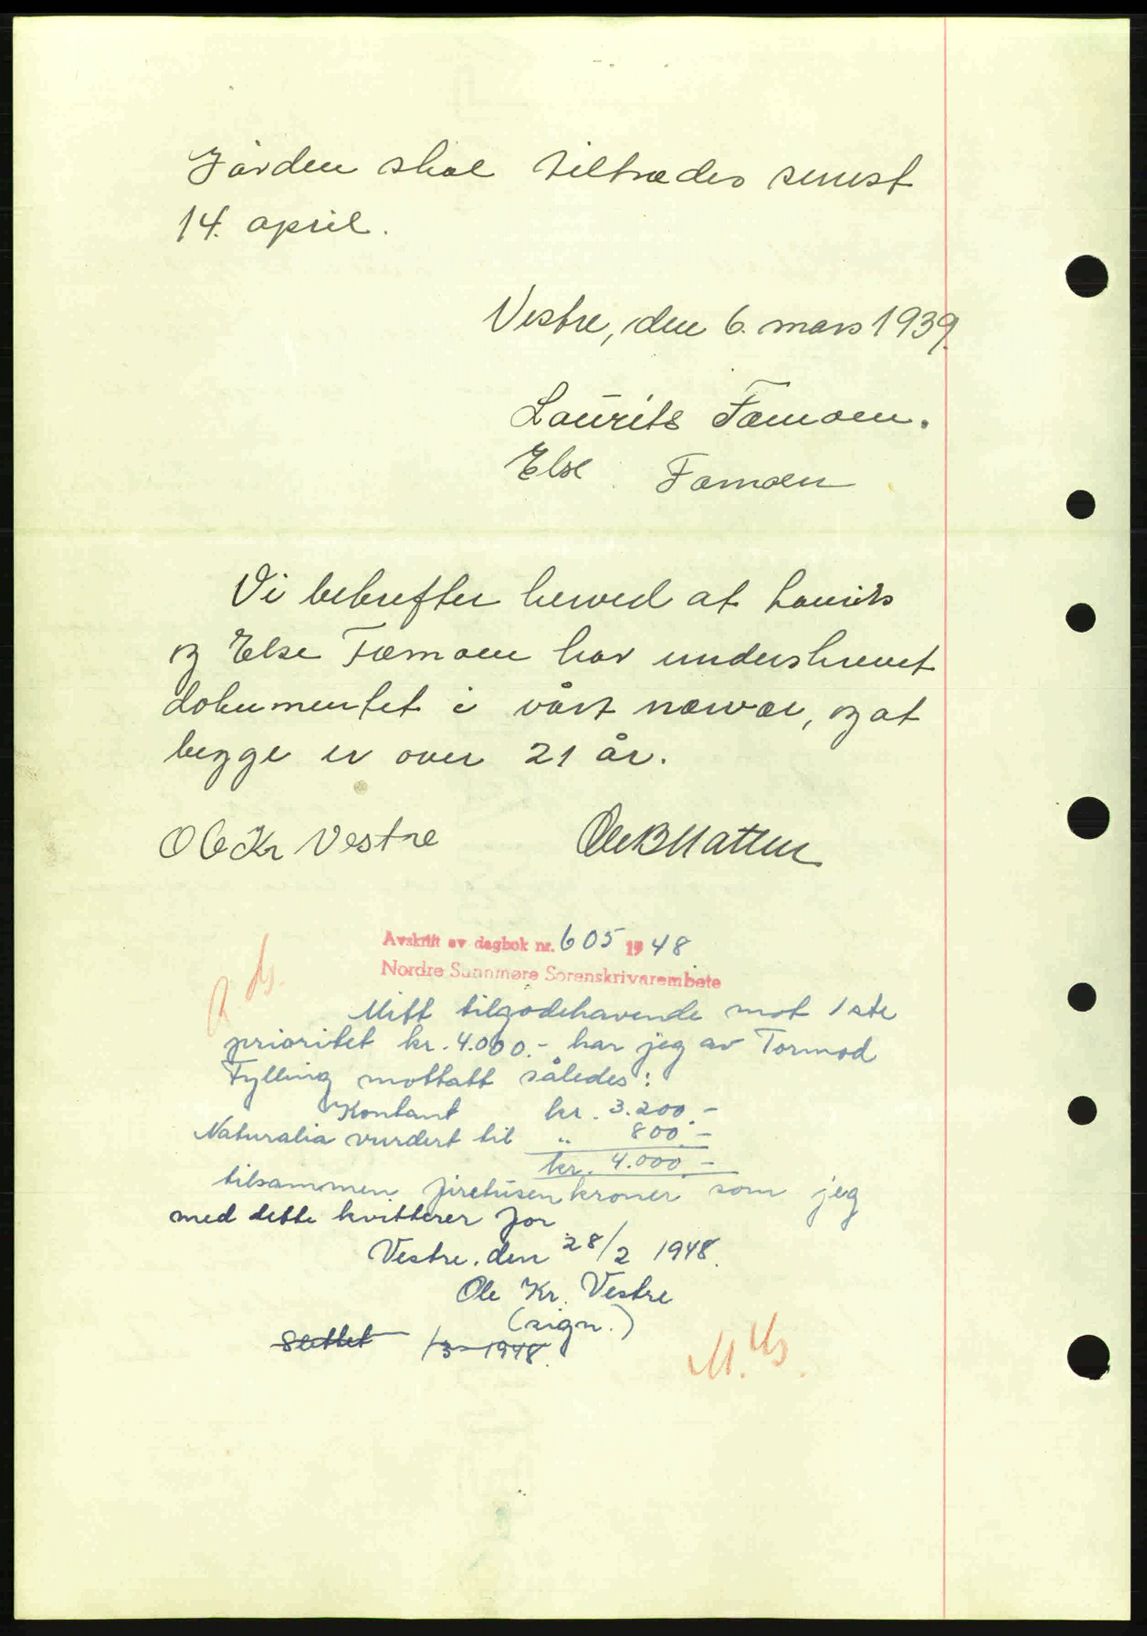 Jorden skal tiltrædes senest
14. april.
Vestre, den 6. mars 1939.
Laurits Fæmoen.
Else Fæmoen
Vi bekrefter herved at Laurits
og Else Fæmoen har underskrevet
dokumentet i vårt nærvær, og at
begge er over 21 år.
Ol Kr Vestre
Ole B Hatten
Avskrift av dagbok nr. 605 1948
Nordre Sunnmøre Sorenskrivarembete
Mitt tilgodehavende mot 1ste
prioritet kr. 4.000.- har jeg av Tormod
Fylling mottatt således:
Kontant kr. 3.200.-
Naturalia vurdert til " 800.-
kr. 4.000.-
tilsammen firetusen kroner som jeg
med dette kvitterer for
Vestre, den 28/2 1948.
Ole Kr. Vestre
(sign.)
Slettet 1/3-1948.